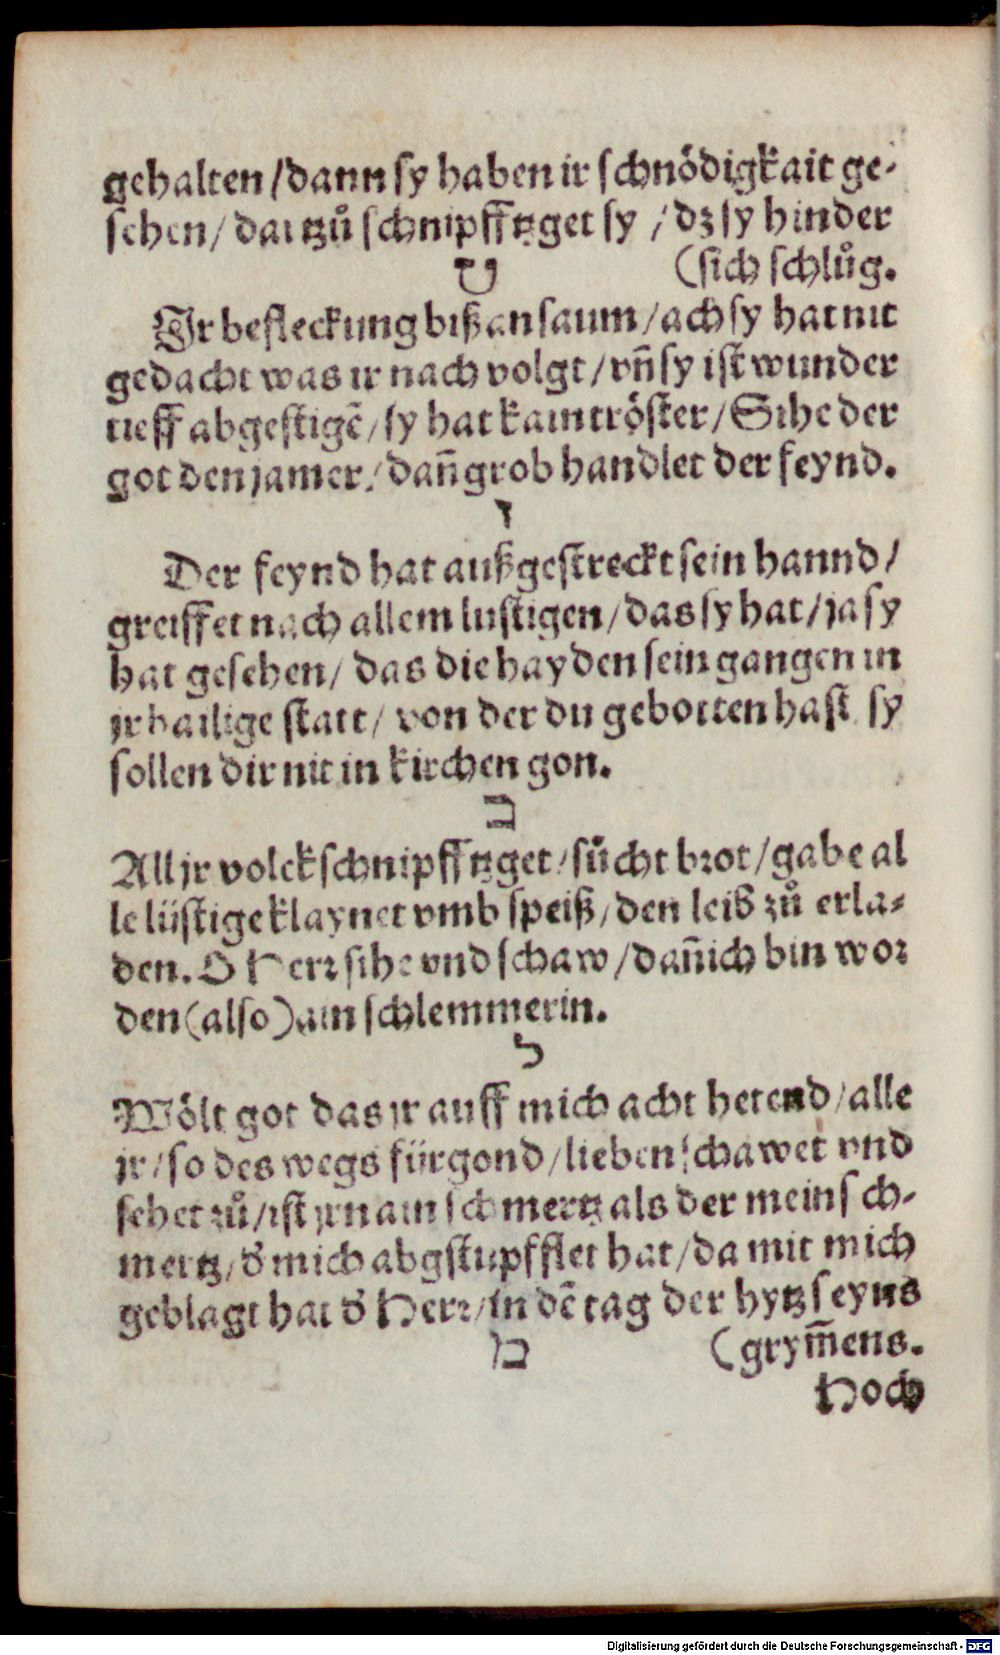 gehalten / dann sy haben ir schnödigkait ge-
sehen / dartzů schnipfftzget sy / dz sy hinder
ט (sich schlůg.
Ir befleckung biß an saum / ach sy hat nit
gedacht was ir nach volgt / vñ sy ist wunder
tieff abgestigẽ / sy hat kain tröster / Sihe der
got den jamer / dañ grob handlet der feynd.
י
Der feynd hat außgestreckt sein hannd /
greiffet nach allem lustigen / das sy hat / ja sy
hat gesehen / das die hayden sein gangen in
jr hailige statt / von der du gebotten hast sy
sollen dir nit in kirchen gon.
כ
All jr volck schnipfftzget / sůcht brot / gabe al
le lüstige klaynet vmb speiß / den leib zů erla-
den. O Herr sihe vnd schaw / dañ ich bin wor
den (also) ain schlemmerin.
ל
Wölt got das jr auff mich acht hetend / alle
jr / so des wegs fürgond / lieben schawet vnd
sehet zů / ist jrn ain schmertz als der mein sch-
mertz / d̕ mich abgstupfflet hat / da mit mich
geblagt hat d̕ Herr / in dẽ tag der hytz seyns
מ (grym̃ens.
Noch
Digitalisierung gefördert durch die Deutsche Forschungsgemeinschaft - DFG